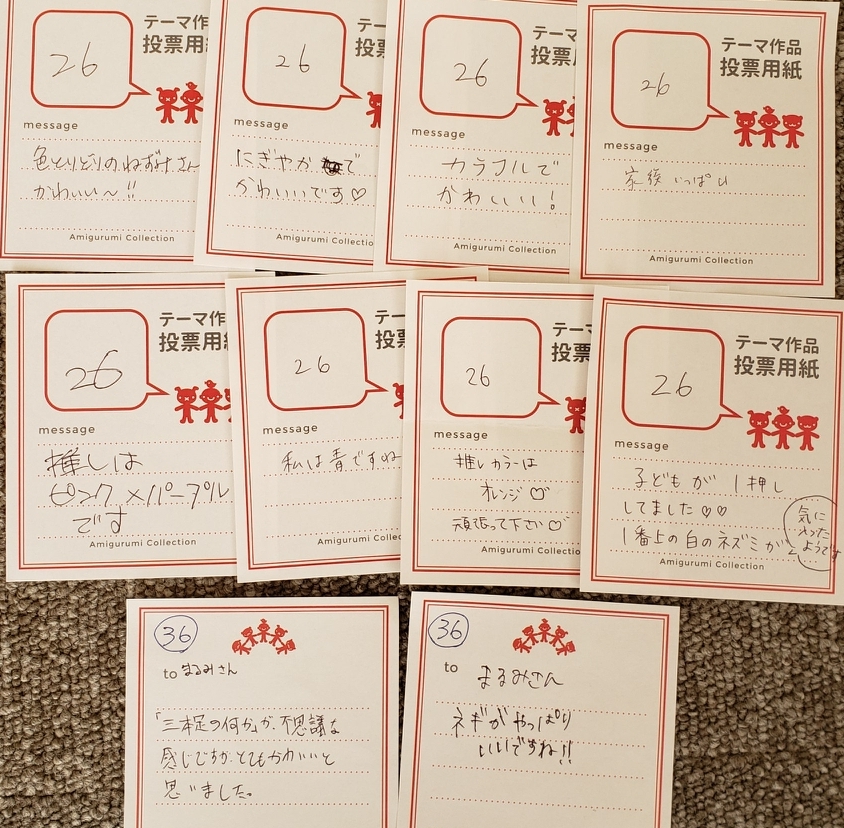 26
テーマ作品
投票用紙
message
色とりどりのねずみさん
かわいい〜!!
Amigurumi Collection
26
テー
投票
message
にぎやかで
かわいいです♡
Amigurumi Collectio
26
テーマ
投票用
message
カラフルで
かわいい!
Amigurumi Collection
26
テーマ作品
投票用紙
message
家族いっぱい
Amigurumi Collection
26
テーマ作
投票用
message
推しは
ピンク×パープル
です
Amigurumi Collection
26
テー
投票
message
私は青ですね
Amigurumi Col
26
テーマ
投票
message
推しカラーは
オレンジ♡
頑張って下さい♡
Amigurumi Collectio
26
テーマ作品
投票用紙
message
子どもが1押し
してました♡♡
1番上の白のネズミが
気に
入った
ようです
Amigurumi Collection
36
to まるみさん
「三本足の何か」が、不思議な
感じですが、とてもかわいいと
思いました。
36
to まるみさん
ネギがやっぱり
いいですね!!